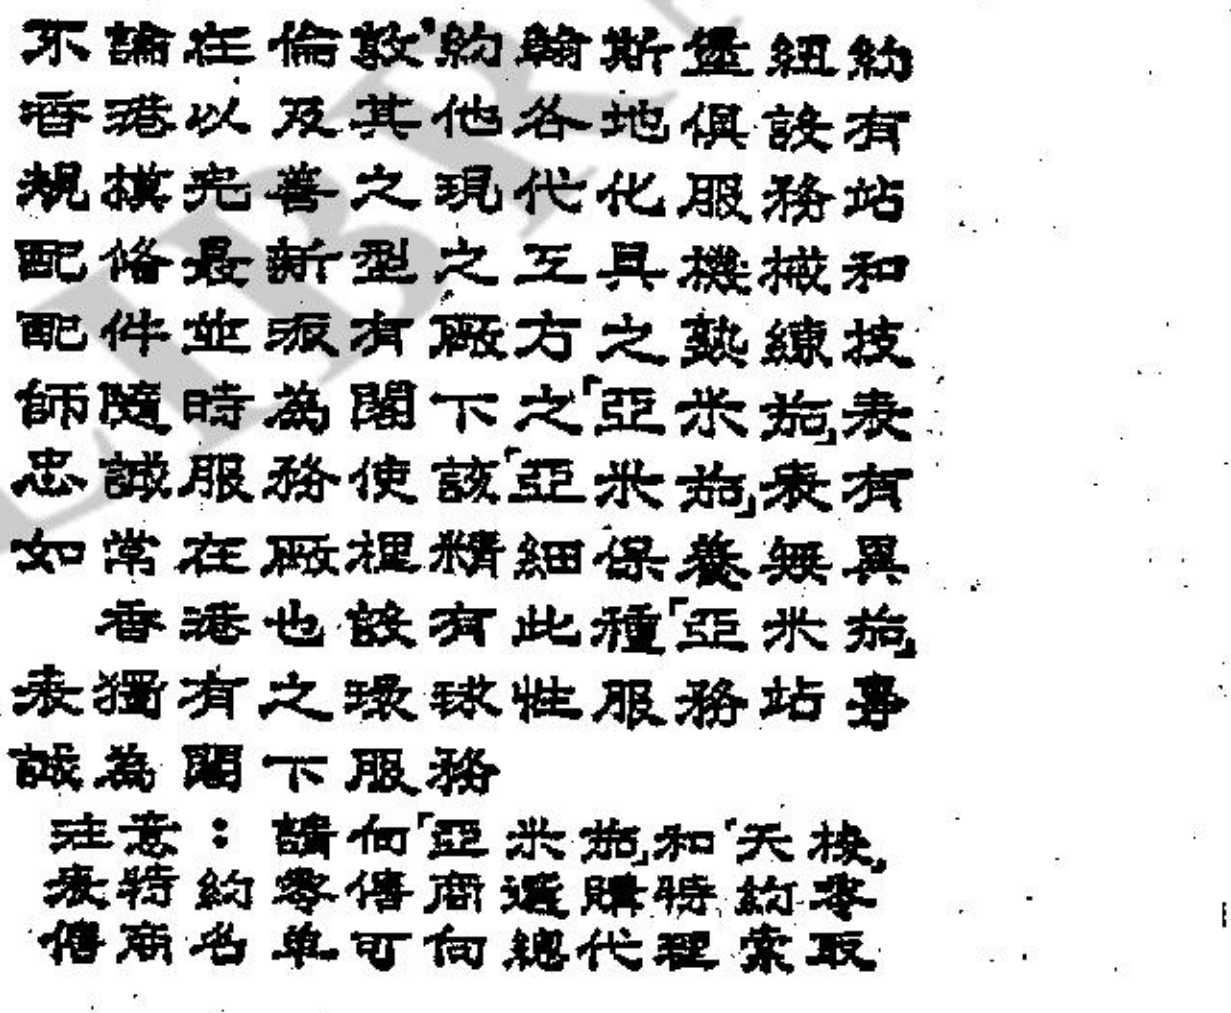 不論在倫敦約翰斯堡紐約
香港以及其他各地俱設有
規模完善之現代化服務站
配備最新型之工具機械和
配件並派有廠方之熟練技
師隨時為閣下之「亞米茄」表
忠誠服務使該「亞米茄」表有
如常在廠裡精細保養無異
香港也設有此種「亞米茄」
表獨有之環球性服務站專
誠為閣下服務
注意：請向「亞米茄」和「天梭」
表特約零售商選購特約零
售商名單可向總代理索取